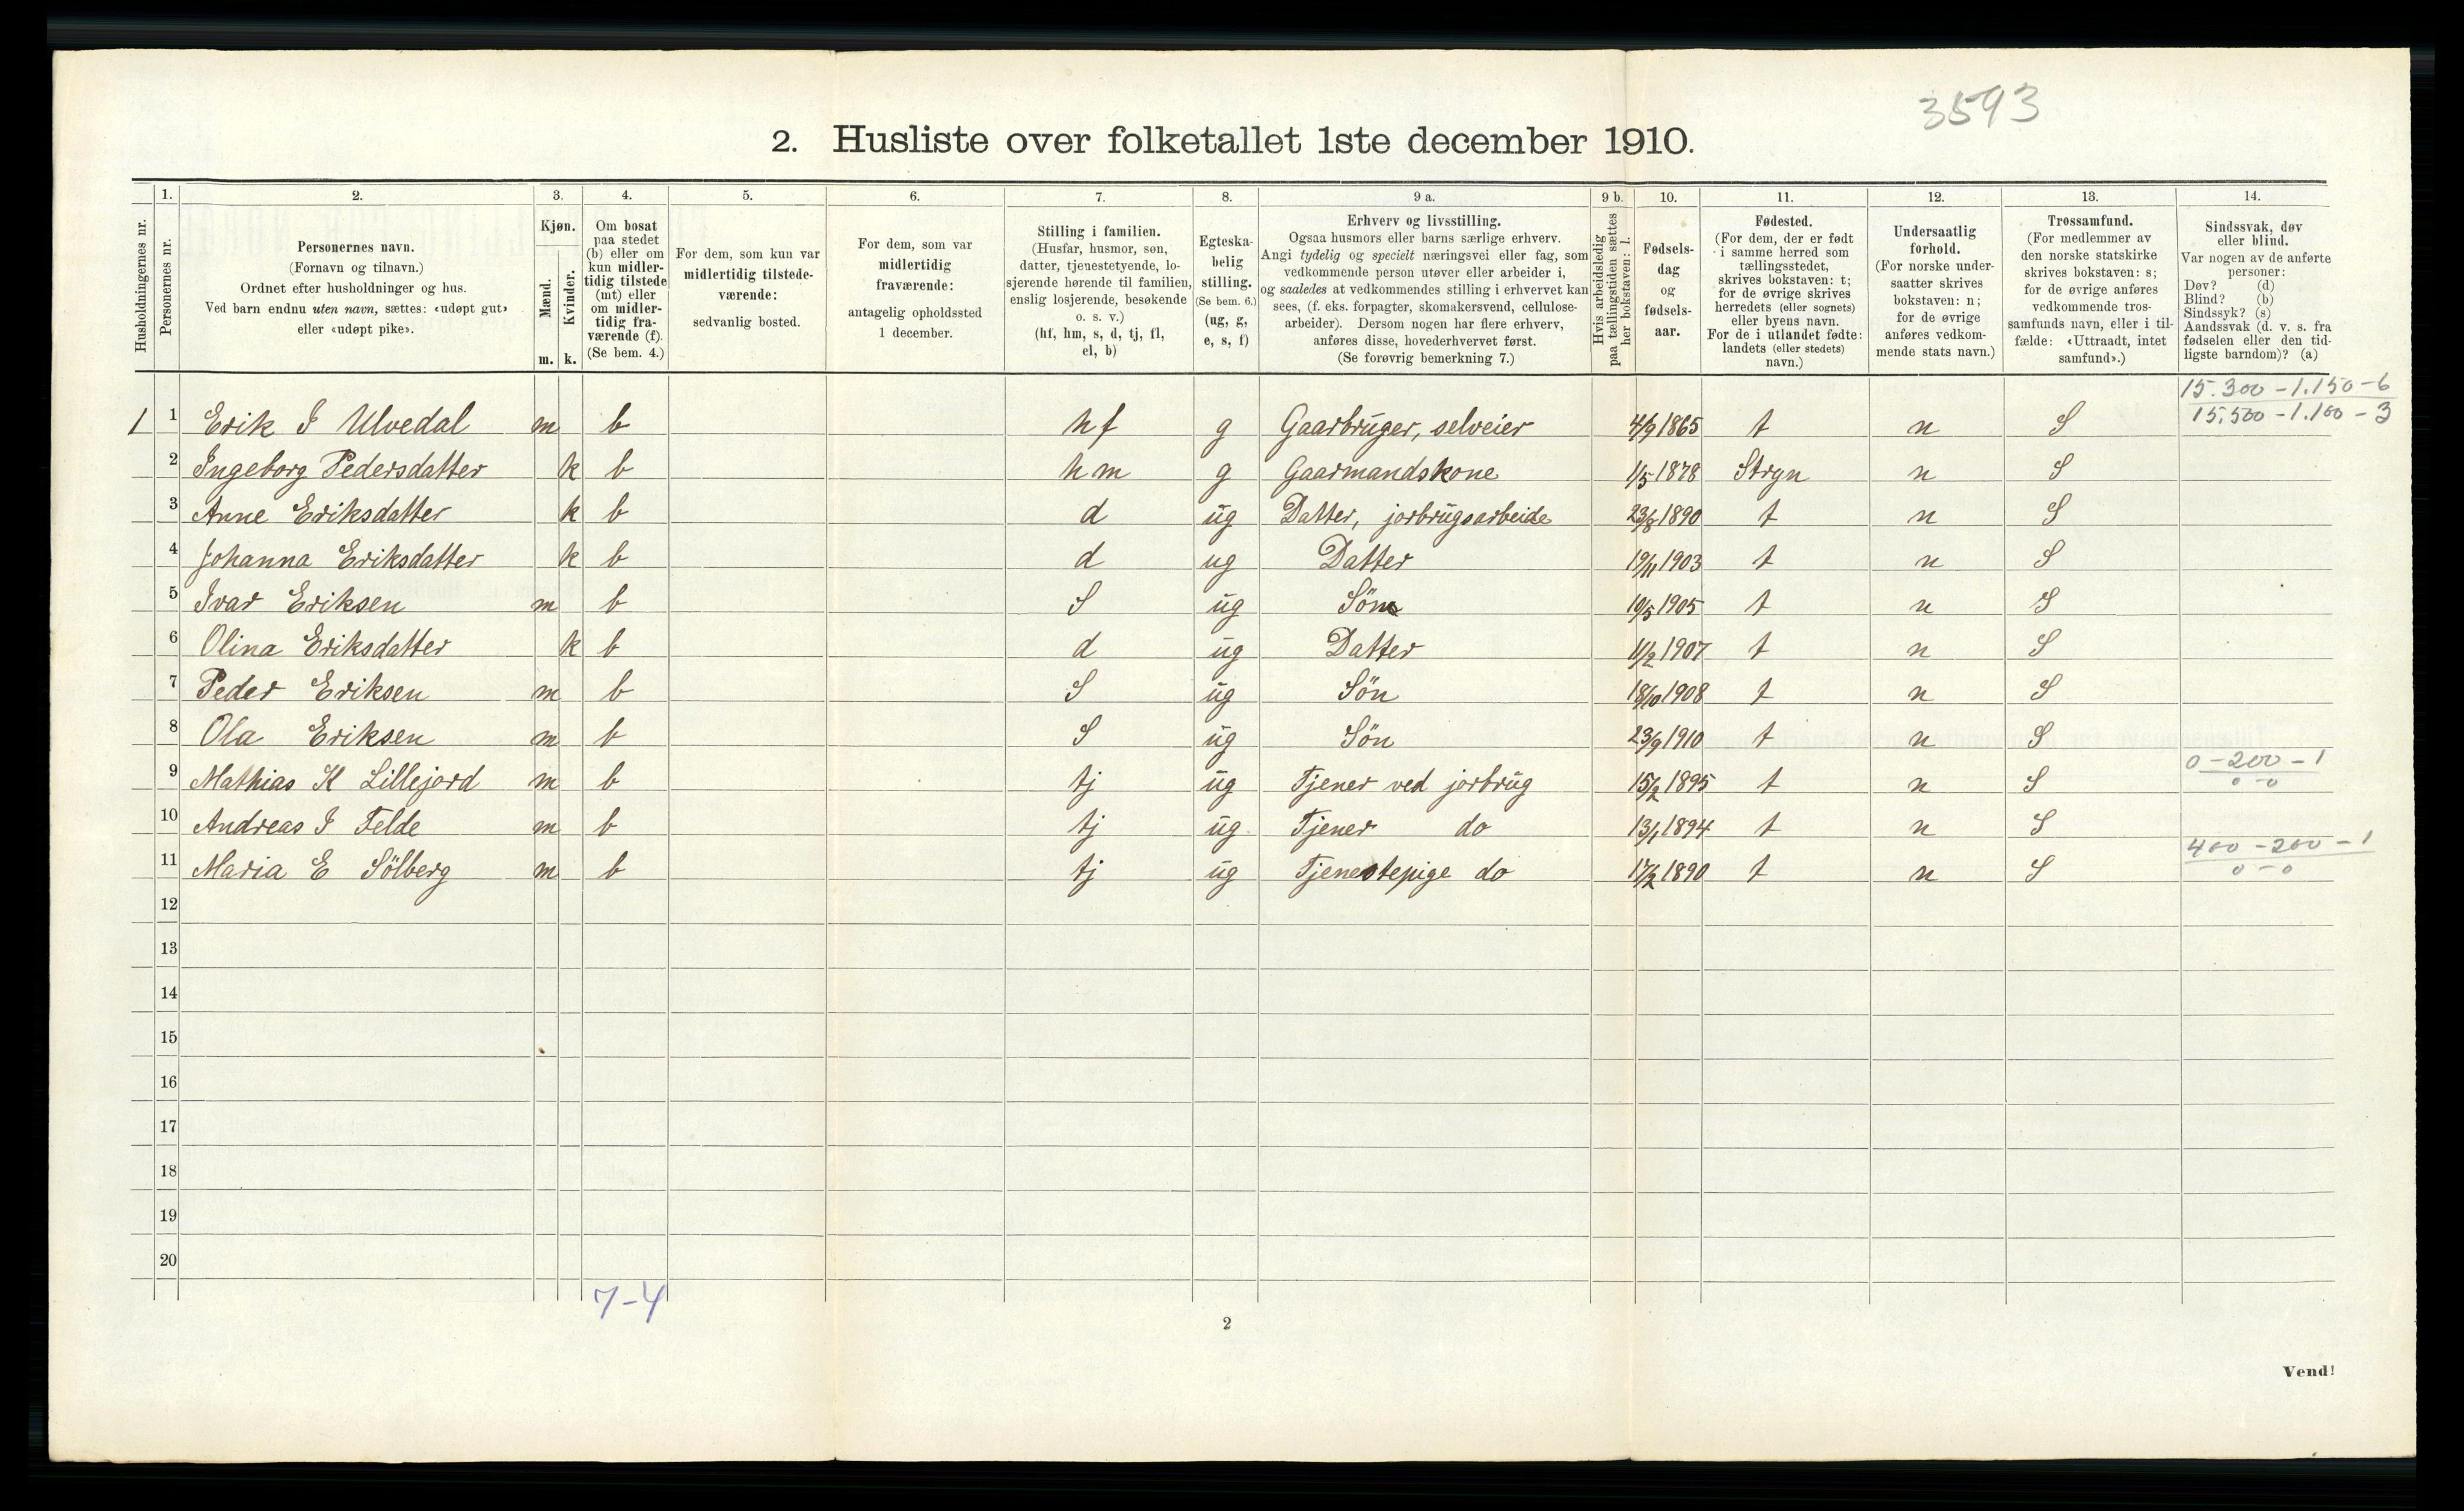 3593
2. Husliste over folketallet 1ste december 1910.
1. 2. 3. 4. 5. 6. 7. 8. 9 a. 9 b. 10. 11. 12. 13. 14.
Husholdningernes nr.
Personernes nr.
Personernes navn.
(Fornavn og tilnavn.)
Ordnet efter husholdninger og hus.
Ved barn endnu uten navn, sættes: «udøpt gut»
eller «udøpt pike».
Kjøn.
Mænd.
Kvinder.
m. k.
Om bosat
paa stedet
(b) eller om
kun midler-
tidig tilstede
(mt) eller
om midler-
tidig fra-
værende (f).
(Se bem. 4.)
For dem, som kun var
midlertidig tilstede-
værende:
sedvanlig bosted.
For dem, som var
midlertidig
fraværende:
antagelig opholdssted
1 december.
Stilling i familien.
(Husfar, husmor, søn,
datter, tjenestetyende, lo-
sjerende hørende til familien,
enslig losjerende, besøkende
o. s. v.)
(hf, hm, s, d, tj, fl,
el, b)
Egteska-
belig
stilling.
(Se bem. 6.)
(ug, g,
e, s, f)
Erhverv og livsstilling.
Ogsaa husmors eller barns særlige erhverv.
Angi tydelig og specielt næringsvei eller fag, som
vedkommende person utøver eller arbeider i,
og saaledes at vedkommendes stilling i erhvervet kan
sees, (f. eks. forpagter, skomakersvend, cellulose-
arbeider). Dersom nogen har flere erhverv,
anføres disse, hovederhvervet først.
(Se forøvrig bemerkning 7.)
Hvis arbeidsledig
paa tællingstiden sættes
her bokstaven: l.
Fødsels-
dag
og
fødsels-
aar.
Fødested.
(For dem, der er født
i samme herred som
tællingsstedet,
skrives bokstaven: t;
for de øvrige skrives
herredets (eller sognets)
eller byens navn.
For de i utlandet fødte:
landets (eller stedets)
navn.)
Undersaatlig
forhold.
(For norske under-
saatter skrives
bokstaven: n;
for de øvrige
anføres vedkom-
mende stats navn.)
Trossamfund.
(For medlemmer av
den norske statskirke
skrives bokstaven: s;
for de øvrige anføres
vedkommende tros-
samfunds navn, eller i til-
fælde: «Uttraadt, intet
samfund».)
Sindssvak, døv
eller blind.
Var nogen av de anførte
personer:
Døv? (d)
Blind? (b)
Sindssyk? (s)
Aandssvak (d. v. s. fra
fødselen eller den tid-
ligste barndom)? (a)
15.300 - 1.150 - 6
1 1 Erik I Ulvedal m b hf g Gaarbruger, selveier 4/9 1865 t n S 15.500 - 1.100 - 3
2 Ingeborg Pedersdatter k b hm g Gaarmandskone 1/5 1878 Stryn n S
3 Anne Eriksdatter k b d ug Datter, jorbrugsarbeide 23/8 1890 t n S
4 Johanna Eriksdatter k b d ug Datter 19/11 1903 t n S
5 Ivar Eriksen m b S ug Søn 10/5 1905 t n S
6 Olina Eriksdatter k b d ug Datter 11/2 1907 t n S
7 Peder Eriksen m b S ug Søn 18/10 1908 t n S
8 Ola Eriksen m b S ug Søn 23/9 1910 t n S
0 - 200 - 1
9 Mathias K Lillejord m b tj ug Tjener ved jorbrug 15/2 1895 t n S 0 - 0
10 Andreas I Felde m b tj ug Tjener do 13/1 1894 t n S
400 - 200 - 1
11 Maria E Sölberg m b tj ug Tjenestepige do 17/2 1890 t n S 0 - 0
12
13
14
15
16
17
18
19
20
7 - 4
2
Vend!